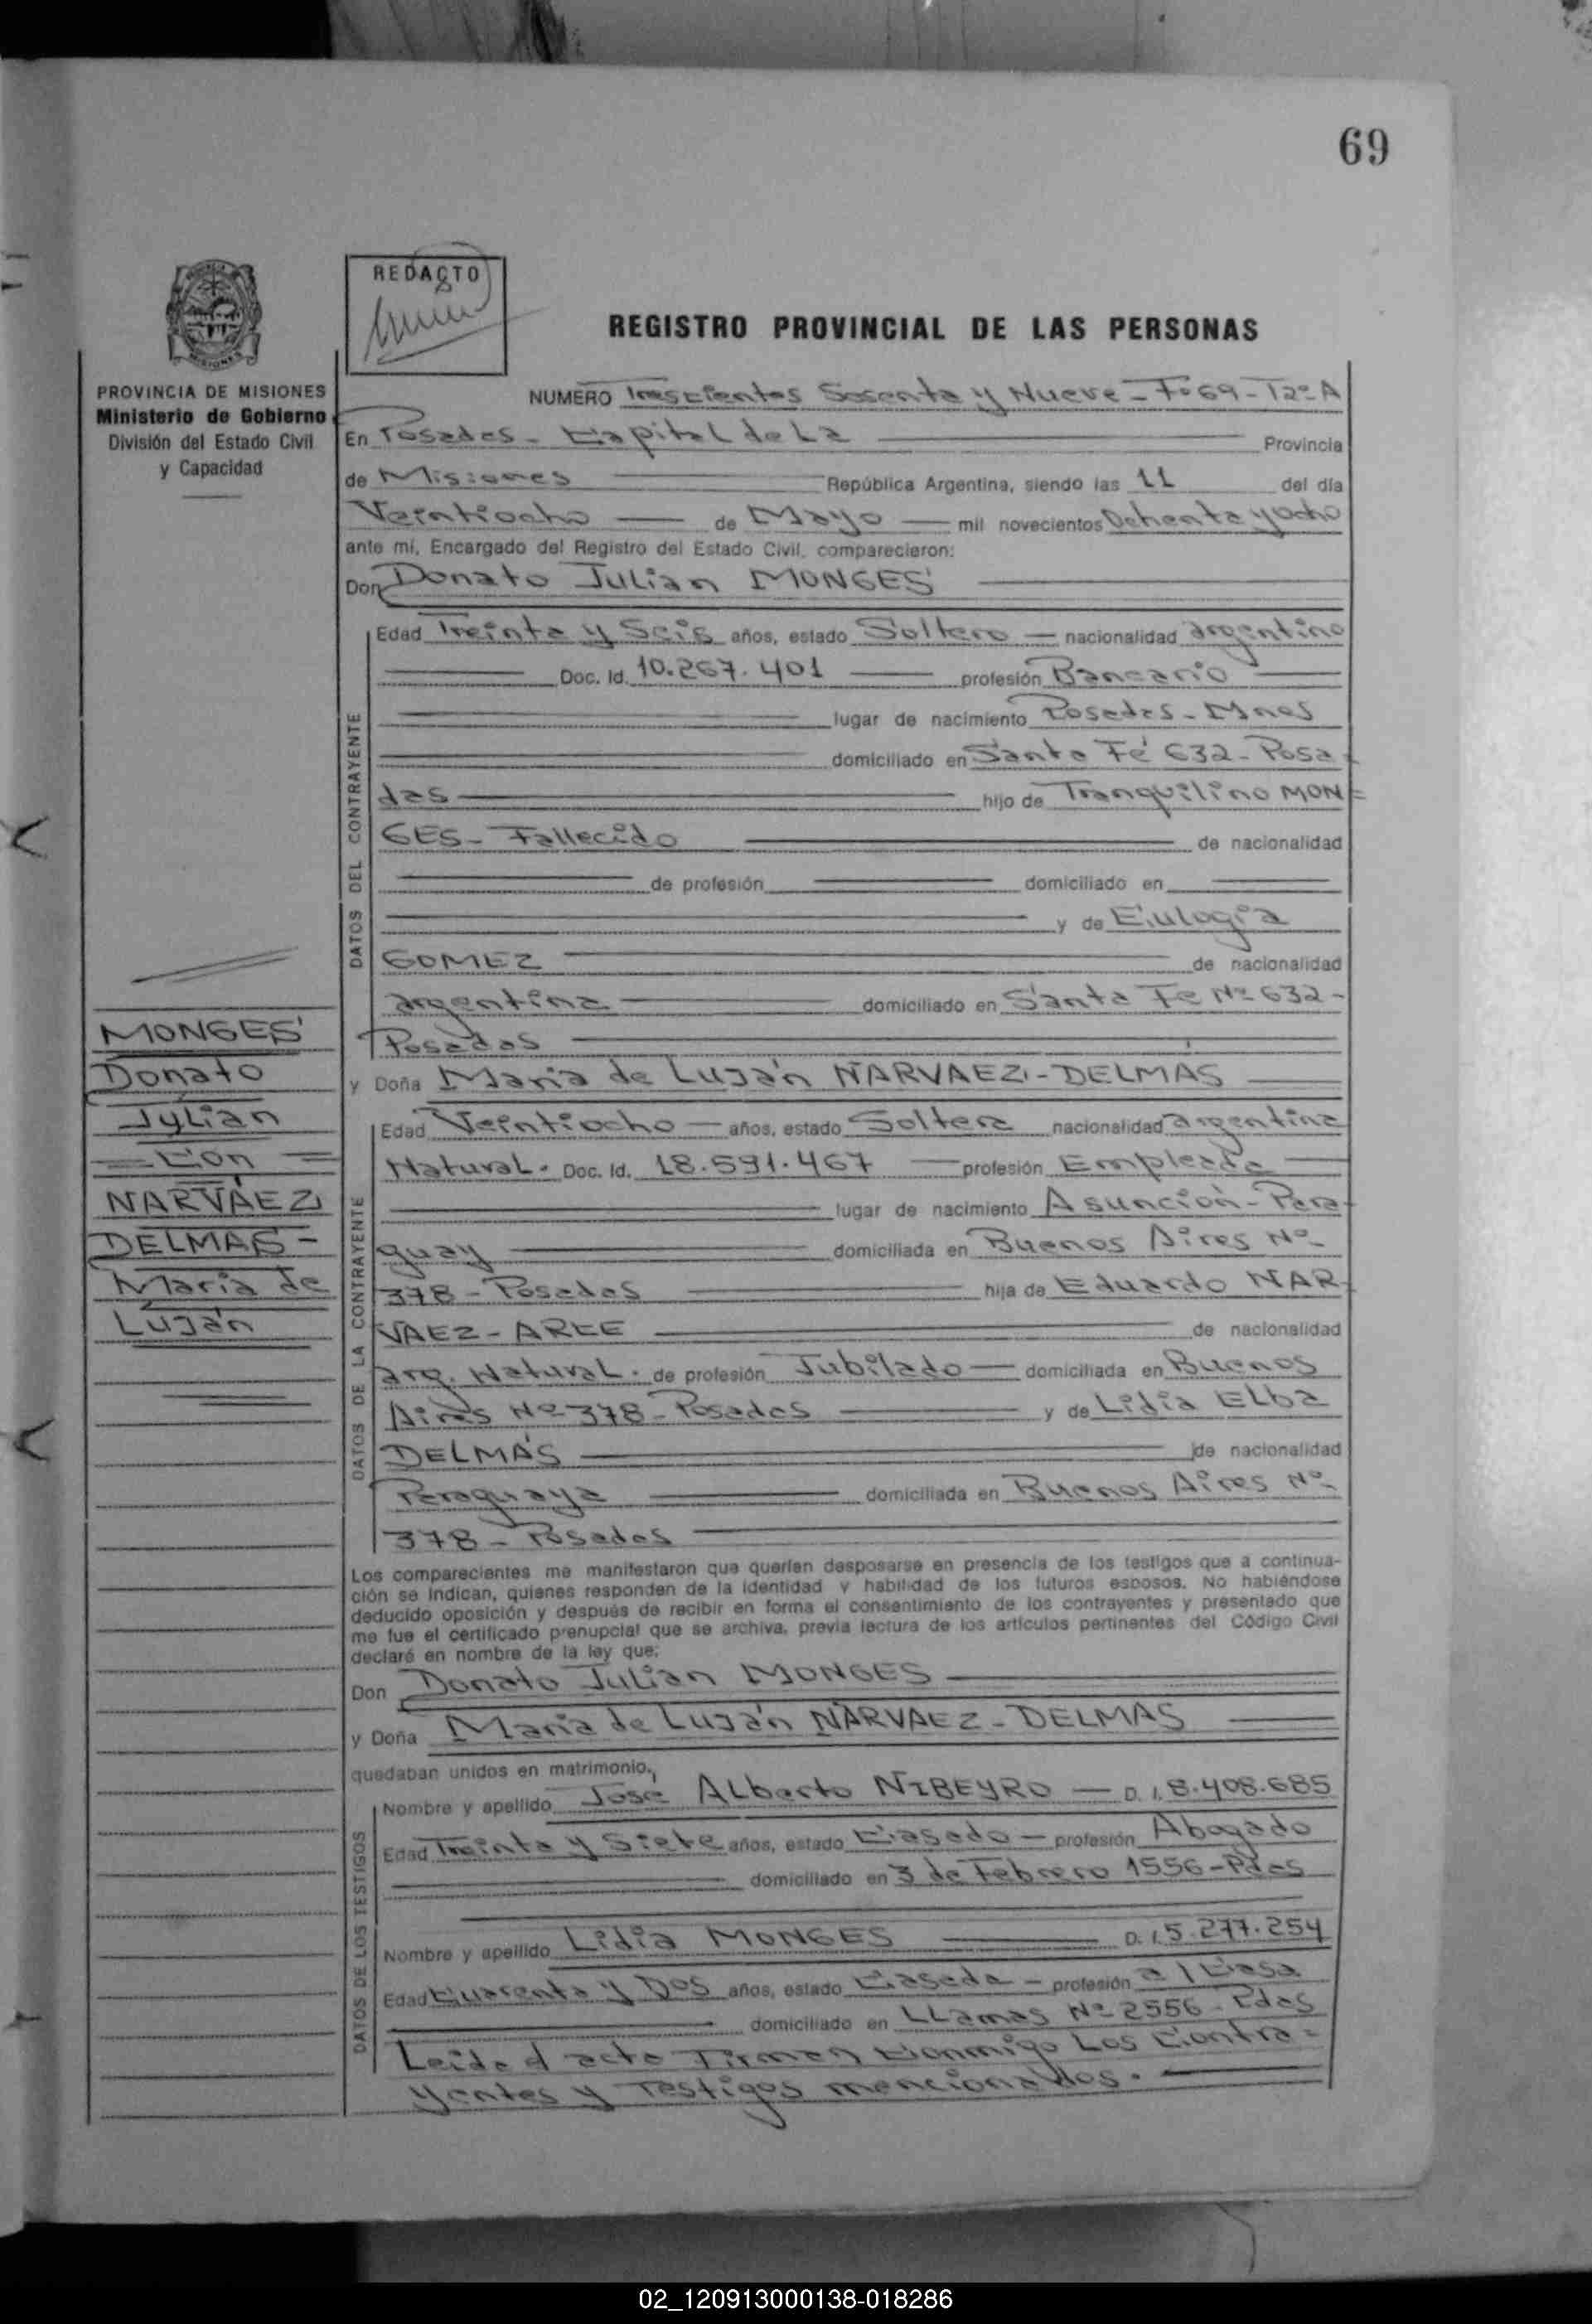 69
REDACTO
REGISTRO PROVINCIAL DE LAS PERSONAS
PROVINCIA DE MISIONES
Ministerio de Gobierno
División del Estado Civil
y Capacidad
NUMERO Trescientos Sesenta y Nueve - Fº 69 - T2º A
En Posadas - Capital de La Provincia
de Misiones República Argentina, siendo las 11 del día
Veintiocho de Mayo mil novecientos Ochenta y ocho
ante mí, Encargado del Registro del Estado Civil, comparecieron:
Don Donato Julian MONGES
DATOS DEL CONTRAYENTE
Edad Treinta y Seis años, estado Soltero nacionalidad argentino
Doc. Id. 10.267.401 profesión Bancario
lugar de nacimiento Posadas - Mnes
domiciliado en Santa Fé 632 - Posa-
das hijo de Tranquilino MON=
GES - Fallecido de nacionalidad
de profesión domiciliado en
y de Eulogia
GOMEZ de nacionalidad
argentina domiciliado en Santa Fe Nº 632 -
Posadas
y Doña Maria de Luján NARVAEZ - DELMÁS
DATOS DE LA CONTRAYENTE
Edad Veintiocho años, estado Soltera nacionalidad argentina
Natural. Doc. Id. 18.591.467 profesión Empleada
lugar de nacimiento Asunción - Para-
guay domiciliada en Buenos Aires Nº
378 - Posadas hija de Eduardo NAR-
VAEZ - ARCE de nacionalidad
arg. Natural. de profesión Jubilado domiciliada en Buenos
Aires Nº 378 - Posadas y de Lidia Elba
DELMÁS de nacionalidad
Paraguaya domiciliada en Buenos Aires Nº
378 - Posadas
Los comparecientes me manifestaron que querían desposarse en presencia de los testigos que a continua-
ción se indican, quienes responden de la identidad y habilidad de los futuros esposos. No habiéndose
deducido oposición y después de recibir en forma el consentimiento de los contrayentes y presentado que
me fue el certificado prenupcial que se archiva, previa lectura de los artículos pertinentes del Código Civil
declaré en nombre de la ley que:
Don Donato Julian MONGES
y Doña Maria de Luján NARVAEZ - DELMAS
quedaban unidos en matrimonio.
DATOS DE LOS TESTIGOS
Nombre y apellido Jose Alberto NIBEYRO D. I. 8.408.685
Edad Treinta y Siete años, estado Casado profesión Abogado
domiciliado en 3 de Febrero 1556 - Pdas
Nombre y apellido Lidia MONGES D. I. 5.277.254
Edad Cuarenta y Dos años, estado Casada profesión a/ Casa
domiciliado en LLamas Nº 2556 - Pdas
Leida el acta Firman Conmigo Los Contra=
yentes y Testigos mencionados.
MONGES
Donato
Julian
= Con =
NARVÁEZ
DELMAS -
Maria de
Luján
02_120913000138-018286